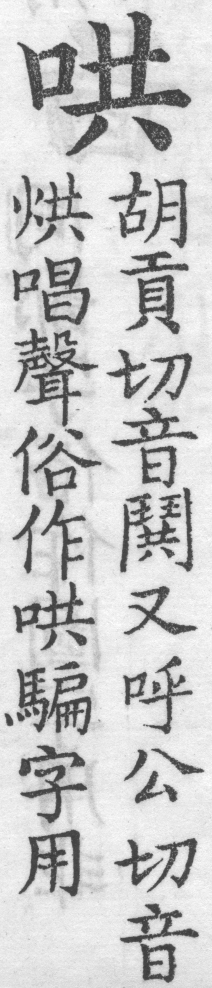 哄
胡貢切音鬨又呼公切音
烘唱聲俗作哄騙字用